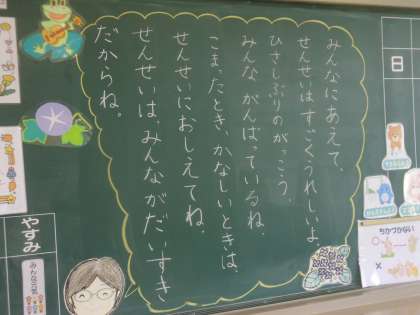 みんなにあえて、
せんせいはすごくうれしいよ。
ひさしぶりのがっこう、
みんながんばっているね。
こまったとき、かなしいときは
せんせいにおしえてね。
せんせいは、みんながだいすき
だからね。
日
やすみ
みんな元気
ちかづかない